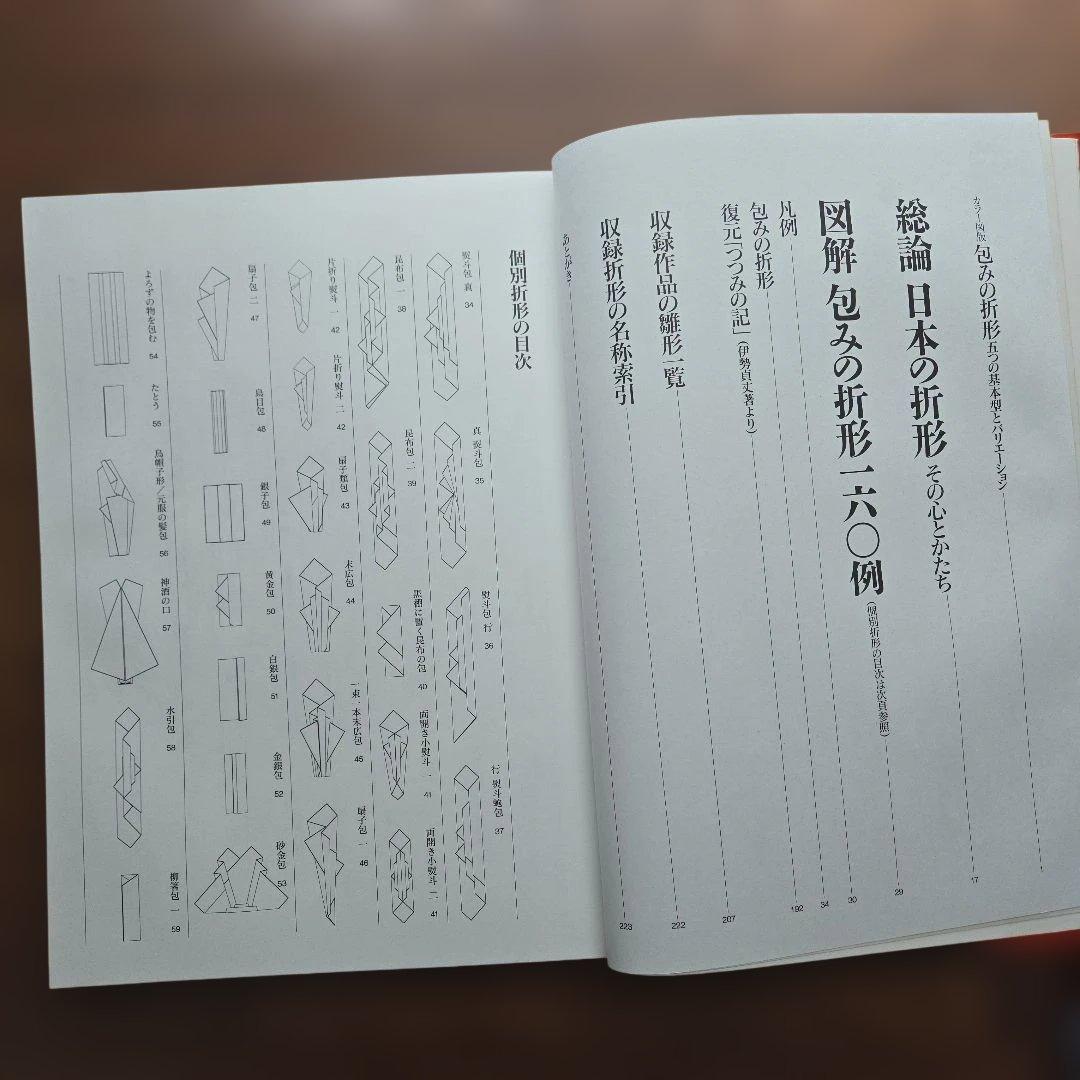 カラー図版 包みの折形 五つの基本型とバリエーション
総論 日本の折形 その心とかたち 17
図解 包みの折形一六〇例 (個別折形の目次は次頁参照) 29
凡例 30
包みの折形 34
復元「つつみの記」(伊勢貞丈著より) 192
収録作品の雛形一覧 207
収録折形の名称索引 222
あとがき 223
個別折形の目次
熨斗包 真 34
真 熨斗包 35
熨斗包 行 36
行 熨斗鮑包 37
昆布包 一 38
昆布包 二 39
黒棚に置く昆布の包 40
両開き小熨斗 一 41
両開き小熨斗 二 41
片折り熨斗 一 42
片折り熨斗 二 42
扇子類包 43
末広包 44
一束一本末広包 45
扇子包 一 46
扇子包 二 47
鳥目包 48
銀子包 49
黄金包 50
白銀包 51
金銀包 52
砂金包 53
よろずの物を包む 54
たとう 55
烏帽子形/元服の髪包 56
神酒の口 57
水引包 58
柳箸包 一 59